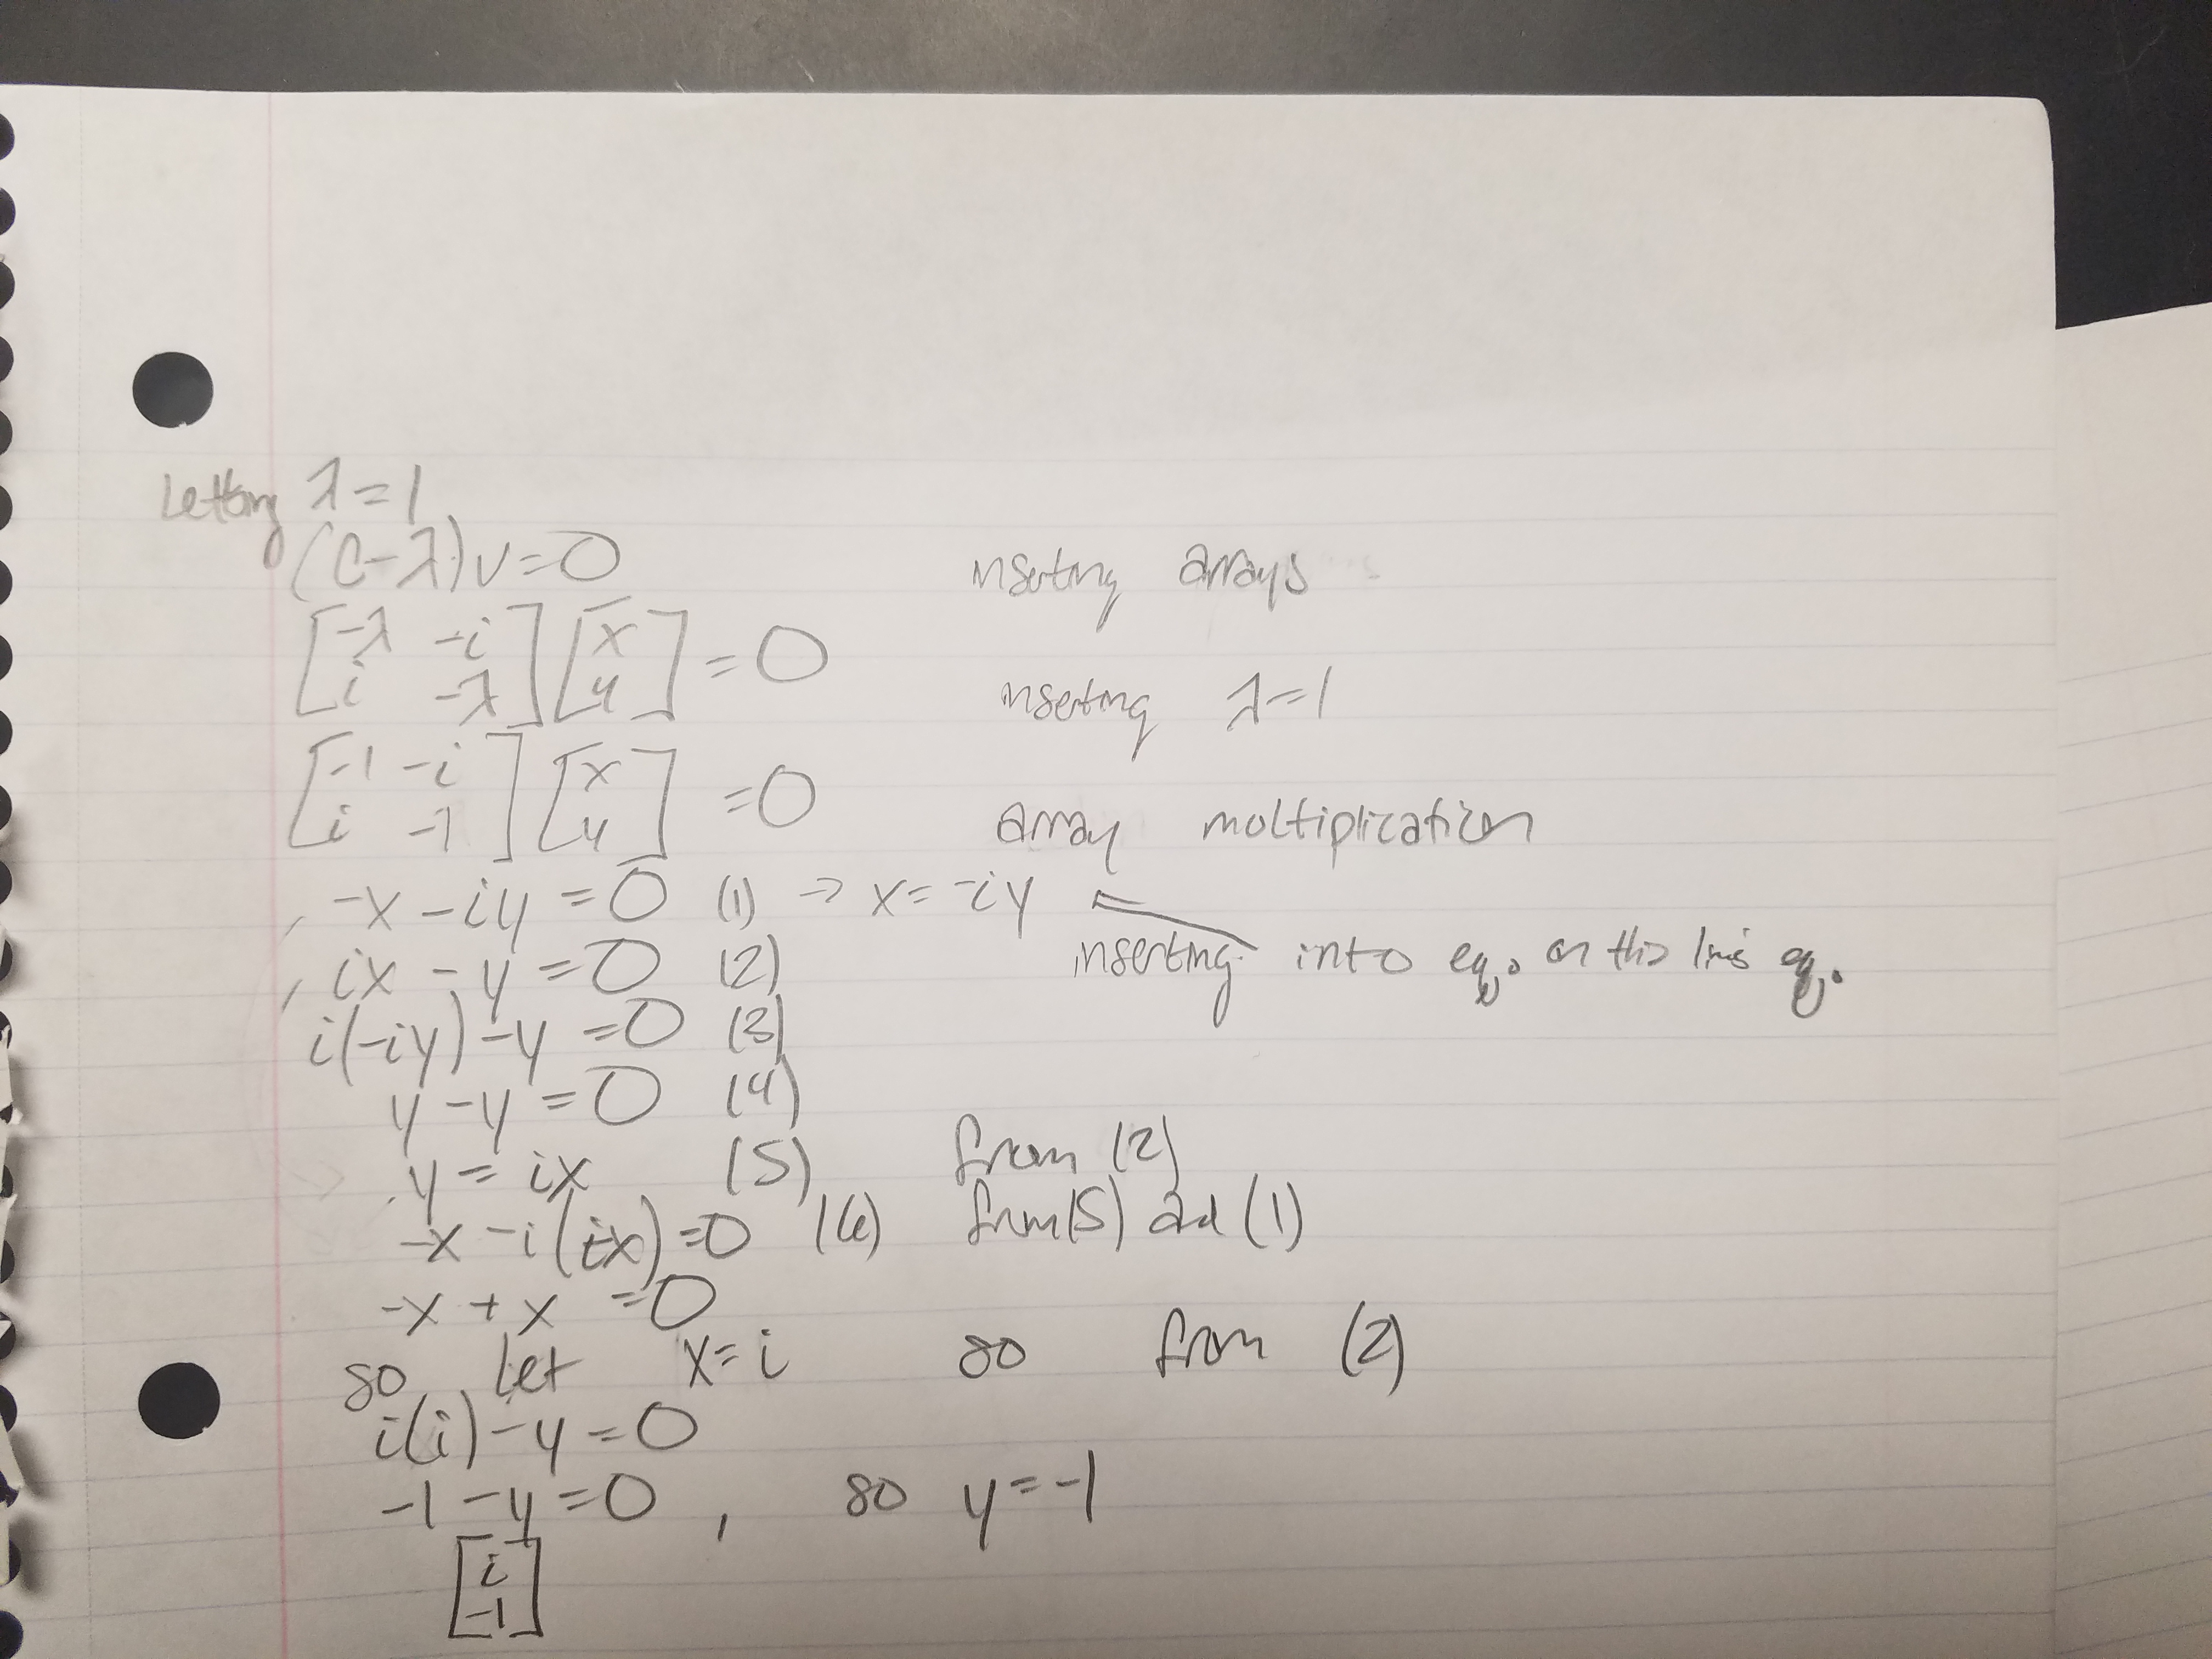 letting λ = 1
(Q - λ)v = 0 inserting arrays
[-λ -i; i -λ] [x; y] = 0 inserting λ=1
[-1 -i; i -1] [x; y] = 0 array multiplication
-x - iy = 0 (1) => x = -iy
ix - y = 0 (2) inserting into eq. on this line
i(-iy) - y = 0 (3)
y - y = 0 (4)
y = ix (5) from (2)
-x - i(ix) = 0 (6) from (5) and (1)
-x + x = 0
so let x = i so from (2)
i(i) - y = 0
-1 - y = 0, so y = -1
[i; -1]